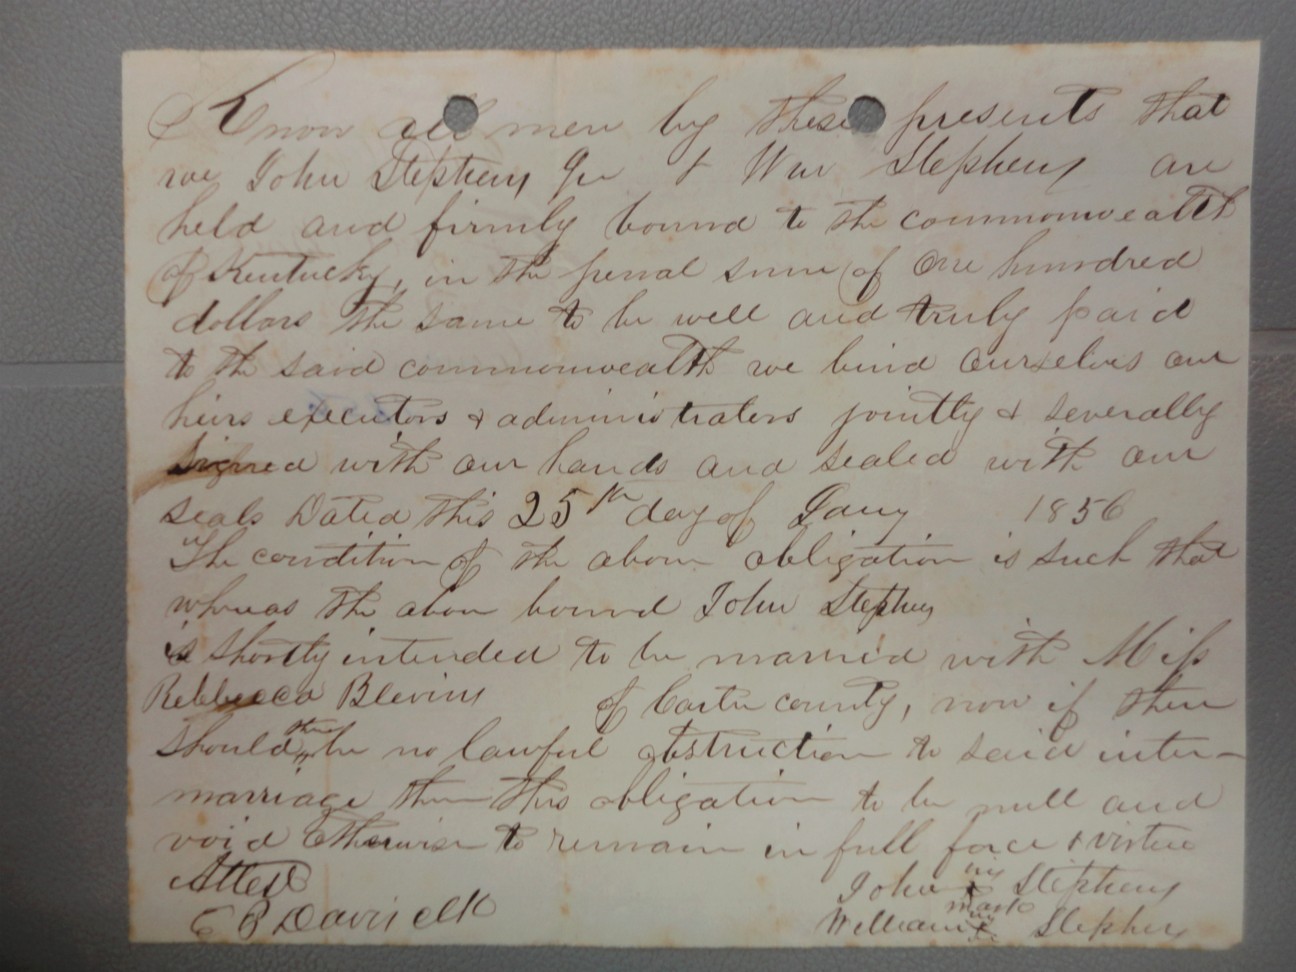 Know all men by these presents that
we John Stephens Jr & Wm Stephens are
held and firmly bound to the commonwealth
of Kentucky, in the penal sum of One hundred
dollars the same to be well and truly paid
to the said commonwealth we bind ourselves our
heirs executors & administrators jointly & severally
Signed with our hands and sealed with our
seals Dated this 25th day of Jany 1856
The condition of the above obligation is such that
whereas the above bound John Stephens
is shortly intended to be married with Miss
Rebbecca Blevins of Carter county, now if there
should there be no lawful obstruction to said inter-
marriage then this obligation to be null and
void Otherwise to remain in full force & virtue
Attest
John his x mark Stephens
E B Davis clk
William his x Stephens